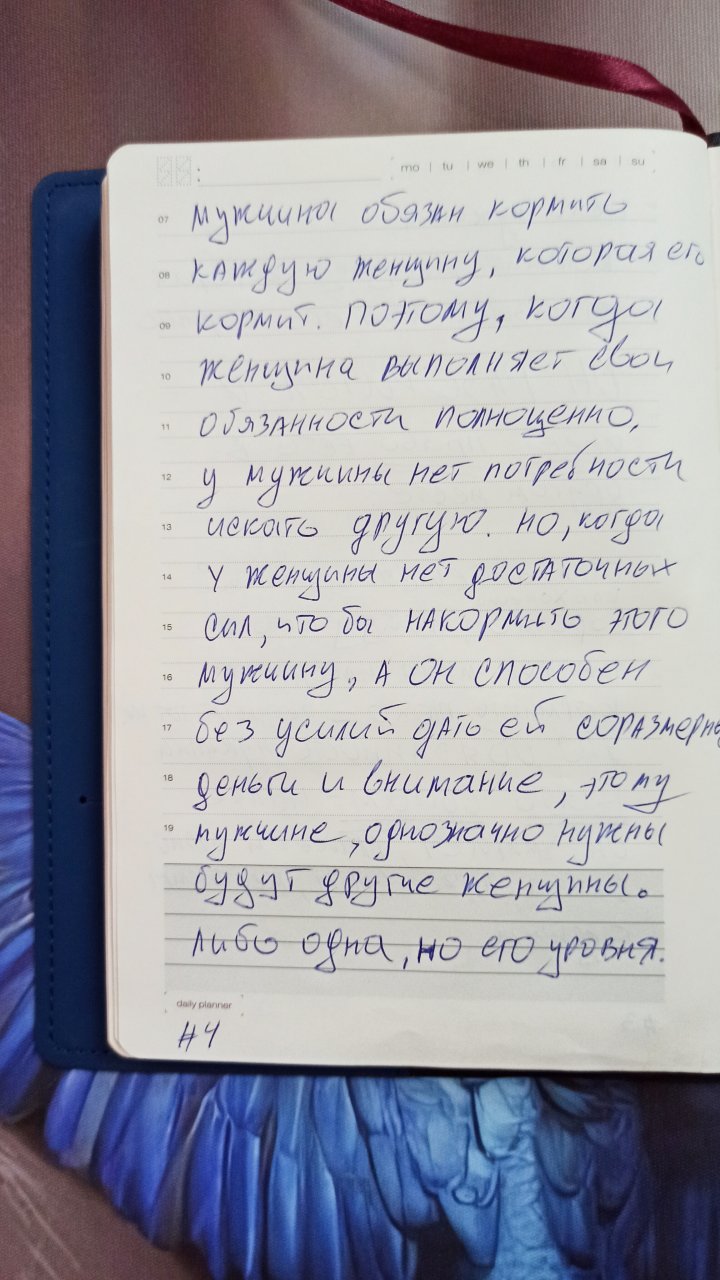 mo | tu | we | th | fr | sa | su
07 мужчина обязан кормить
08 каждую женщину, которая его
09 кормит. Поэтому, когда
10 женщина выполняет свои
11 обязанности полноценно,
12 у мужчины нет потребности
13 искать другую. но, когда
14 у женщины нет достаточных
15 сил, что бы накормить этого
16 мужчину, а он способен
17 без усилий дать ей соразмерны
18 деньги и внимание, этому
19 мужчине, однозначно нужны
будут другие женщины.
либо одна, но его уровня.
daily planner
#4